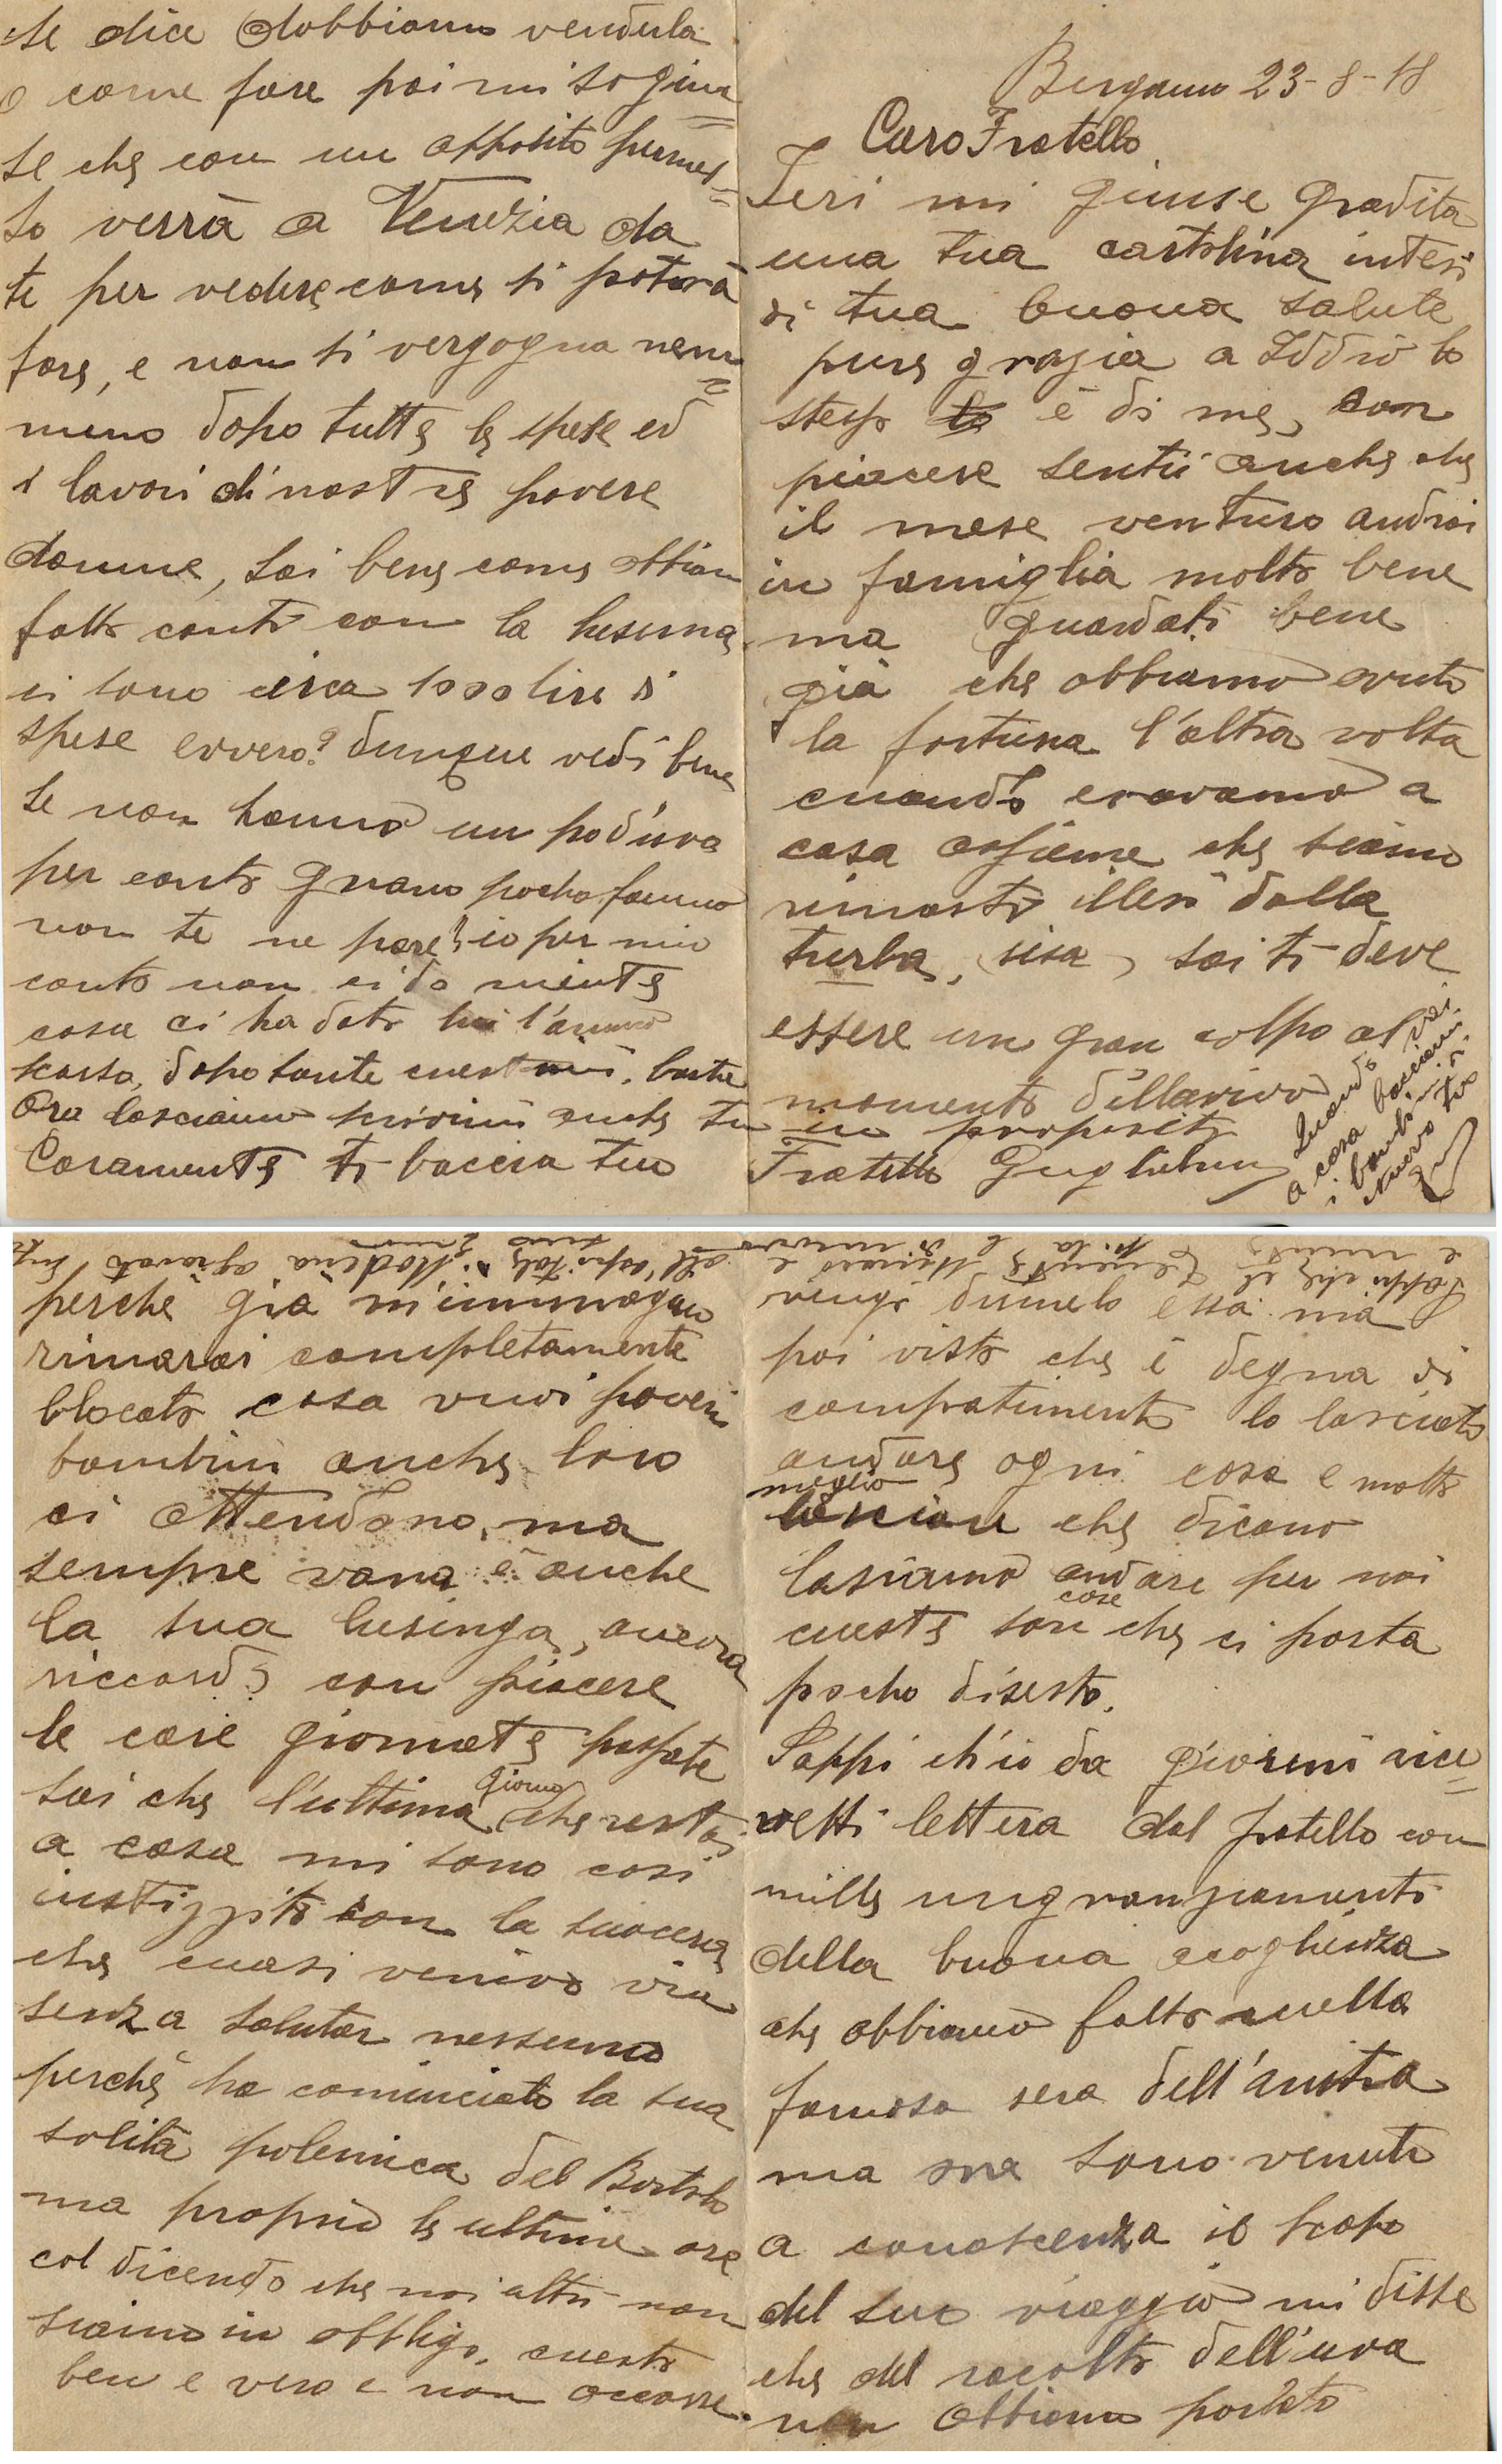 Bergamo 23-8-18
Caro Fratello
Ieri mi giunse gradita
una tua cartolina intesi
di tua buona salute
pure grazia a Iddio lo
stesso è di me, con
piacere sentii anche che
il mese venturo andrai
in famiglia molto bene
ma guardati bene
già che abbiamo avuto
la fortuna l'altra volta
cuando eravamo a
casa assieme che siamo
rimasti illesi dalla
turba, sisa, sai ti deve
essere un gran colpo al
momento dell'arrivo
in proposito
perché già m'immagino
rimarai completamente
blocato cosa vuoi poveri
bambini anche loro
ci attendono, ma
sempre vana è anche
la sua lusinga, ancora
riccordo con piacere
le care giornate passate
sai che l'ultima giorno che restai
a casa mi sono cosi
instizzito con la suocera
che cuasi venivo via
senza salutar nessuno
perché ha cominciato la sua
solita polemica del Bortolo
ma proprio le ultime ore
col dicendo che noi altri non
siamo in obbligo, cuesto
ben e vero e non occorre
vengo dirmelo essa ma
poi visto che è degna di
compatimento lo lasciato
andare ogni cosa e molto
meglio lasciare che dicano
lasciamo andare per noi
cueste cose son che ci porta
pocho disesto.
Sappi ch'io da giorni rice=
vetti lettera dal fratello con
mille ungranziamenti
della buona acoglienza
che abbiamo fatto cuella
famosa sera dell'anitra
ma ora sono venuto
a conoscenza il scopo
del suo viaggio mi disse
che del racolto dell'uva
non abbiamo portato
se dice dobbiamo venderla
o come fare poi mi sogiun=
se che con un apposito permes=
so verrà a Venezia da
te per vedere come si potorà
fare, e non si vergogna nem=
meno dopo tutte le spese ed
i lavori di nostre povere
donne, sai bene come abbiam
fatto conto con la
ci sono circa 1000 lire di
spese evvero? dunque vedi bene
se non hanno un po d'uva
per conto grano pocho fanno
non te ne pare? io per mio
conto non ci do niente
cosa ci ha dato lui l'anno
scorso, dopo tante cuestioni, basta
Ora lasciamo scrivimi anche tu
Caramente ti baccia tuo
Fratello Guglielmo
Cuando vai
a casa bacciami
i bambini
nuovo tuo
Sappi che il Clemente
all'ospitale Modena